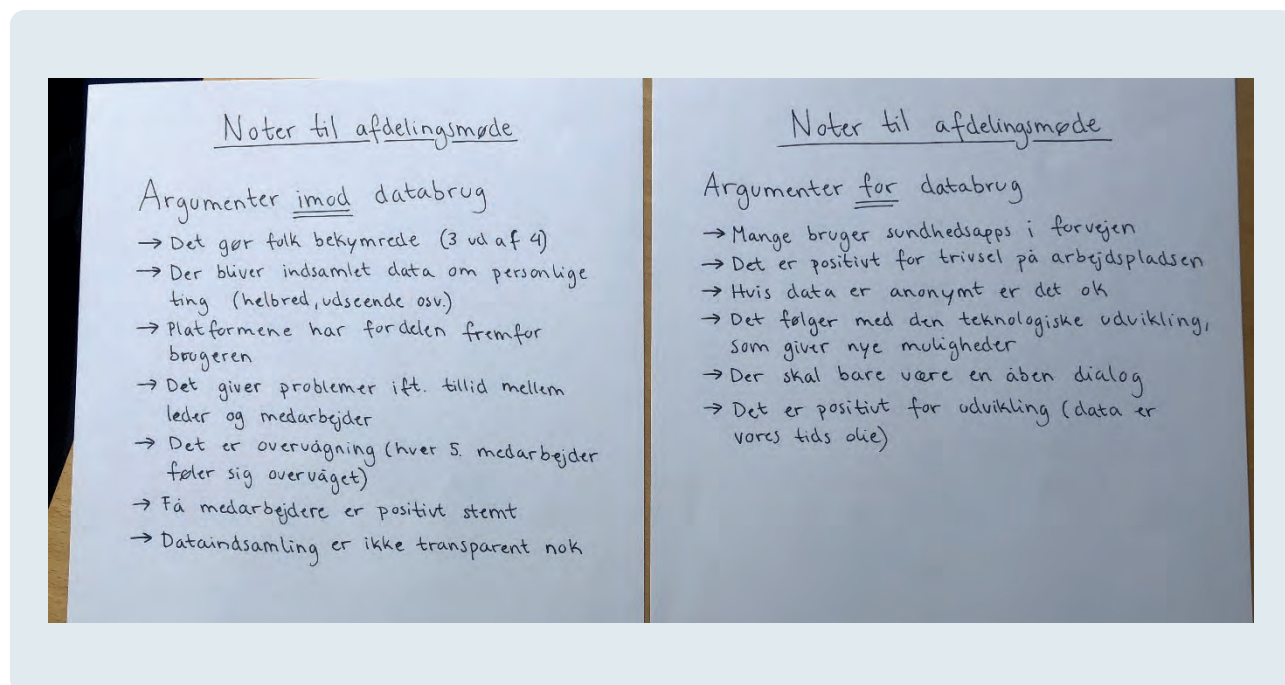 Noter til afdelingsmøde
Argumenter imod databrug
→ Det gør folk bekymrede (3 ud af 4)
→ Der bliver indsamlet data om personlige
ting (helbred, udseende osv.)
→ Platformene har fordelen fremfor
brugeren
→ Det giver problemer ift. tillid mellem
leder og medarbejder
→ Det er overvågning (hver 5. medarbejder
føler sig overvåget)
→ Få medarbejdere er positivt stemt
→ Dataindsamling er ikke transparent nok
Noter til afdelingsmøde
Argumenter for databrug
→ Mange bruger sundhedsapps i forvejen
→ Det er positivt for trivsel på arbejdspladsen
→ Hvis data er anonymt er det ok
→ Det følger med den teknologiske udvikling,
som giver nye muligheder
→ Der skal bare være en åben dialog
→ Det er positivt for udvikling (data er
vores tids olie)